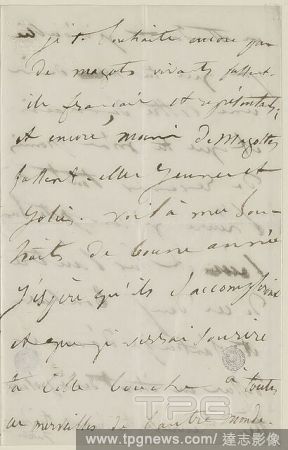 je te souhaite encore peu
de magots vivants fussent-
ils français et représentatifs,
et encore moins de Magottes
fussent-elles Jeunes et
Jolies. voilà mes sou-
haits de bonne année
J'espère qu'ils s'accompliront
et que je verrai sourire
ta belle bouche à toutes
ces merveilles de l'autre monde.
TPG
www.tpgnews.com / 達志影像